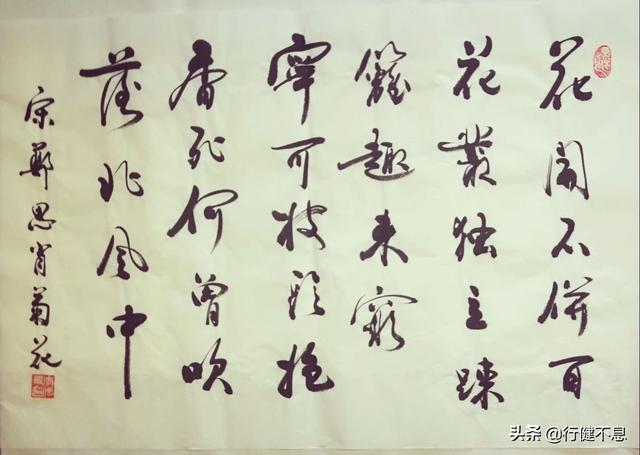 花開不併百
花叢独立疎
籬趣未窮
寧可枝頭抱
香死何曾吹
落北風中
宋鄭思肖菊花
头条 @行健不息